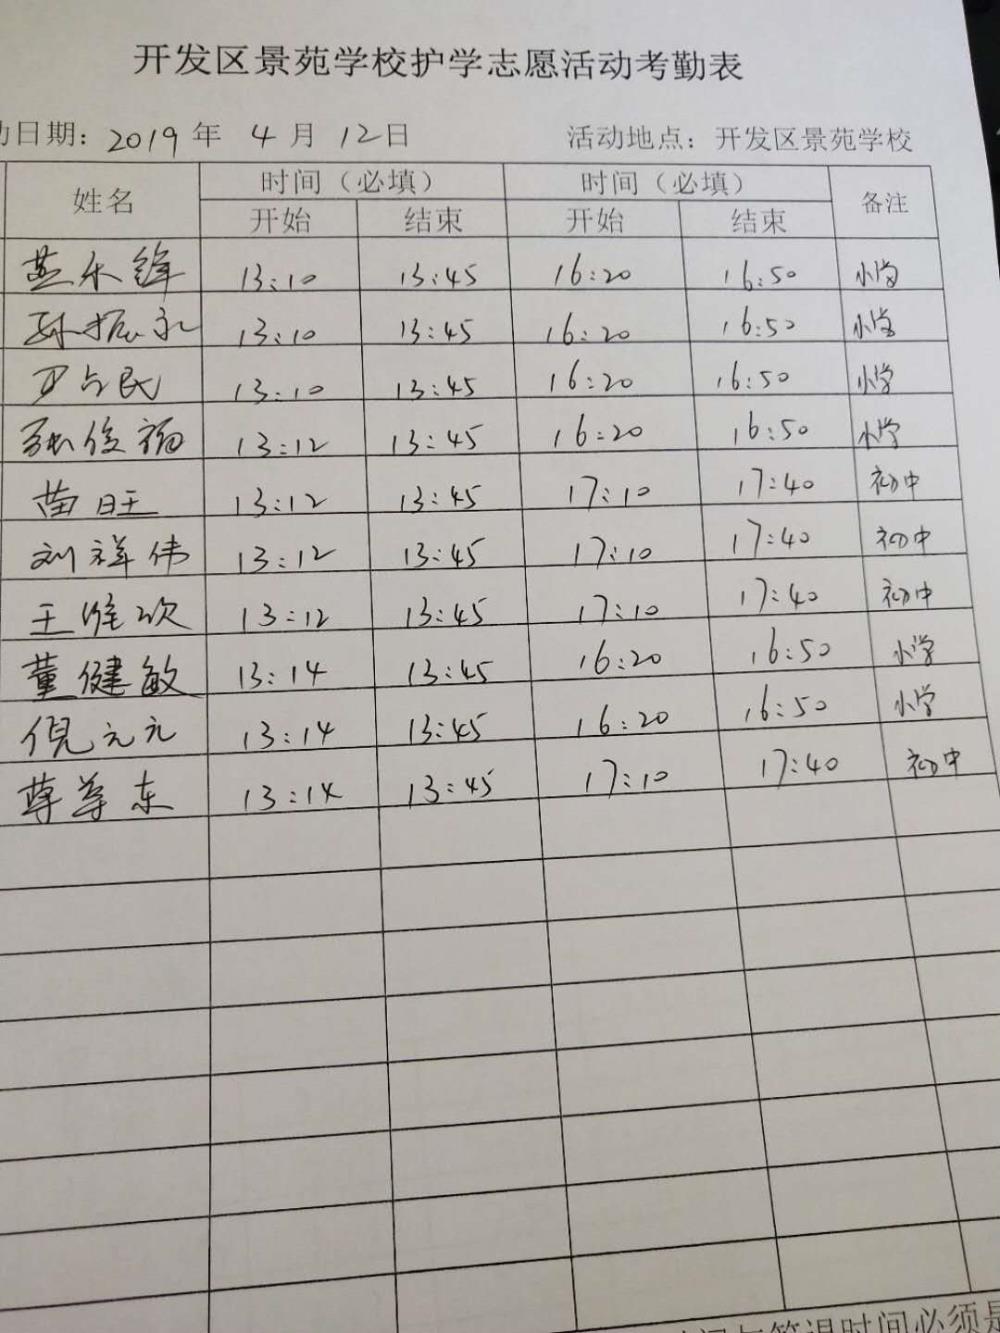 开发区景苑学校护学志愿活动考勤表
动日期: 2019 年 4 月 12日 活动地点: 开发区景苑学校
姓名 时间（必填） 时间（必填） 备注
开始 结束 开始 结束
13:10 13:45 16:20 16:50 小学
孙振永 13:10 13:45 16:20 16:50 小学
尹占民 13:10 13:45 16:20 16:50 小学
张俊福 13:12 13:45 16:20 16:50 小学
苗旺 13:12 13:45 17:10 17:40 初中
刘祥伟 13:12 13:45 17:10 17:40 初中
王维欣 13:12 13:45 17:10 17:40 初中
董健敏 13:14 13:45 16:20 16:50 小学
倪元元 13:14 13:45 16:20 16:50 小学
13:14 13:45 17:10 17:40 初中
签退时间必须是